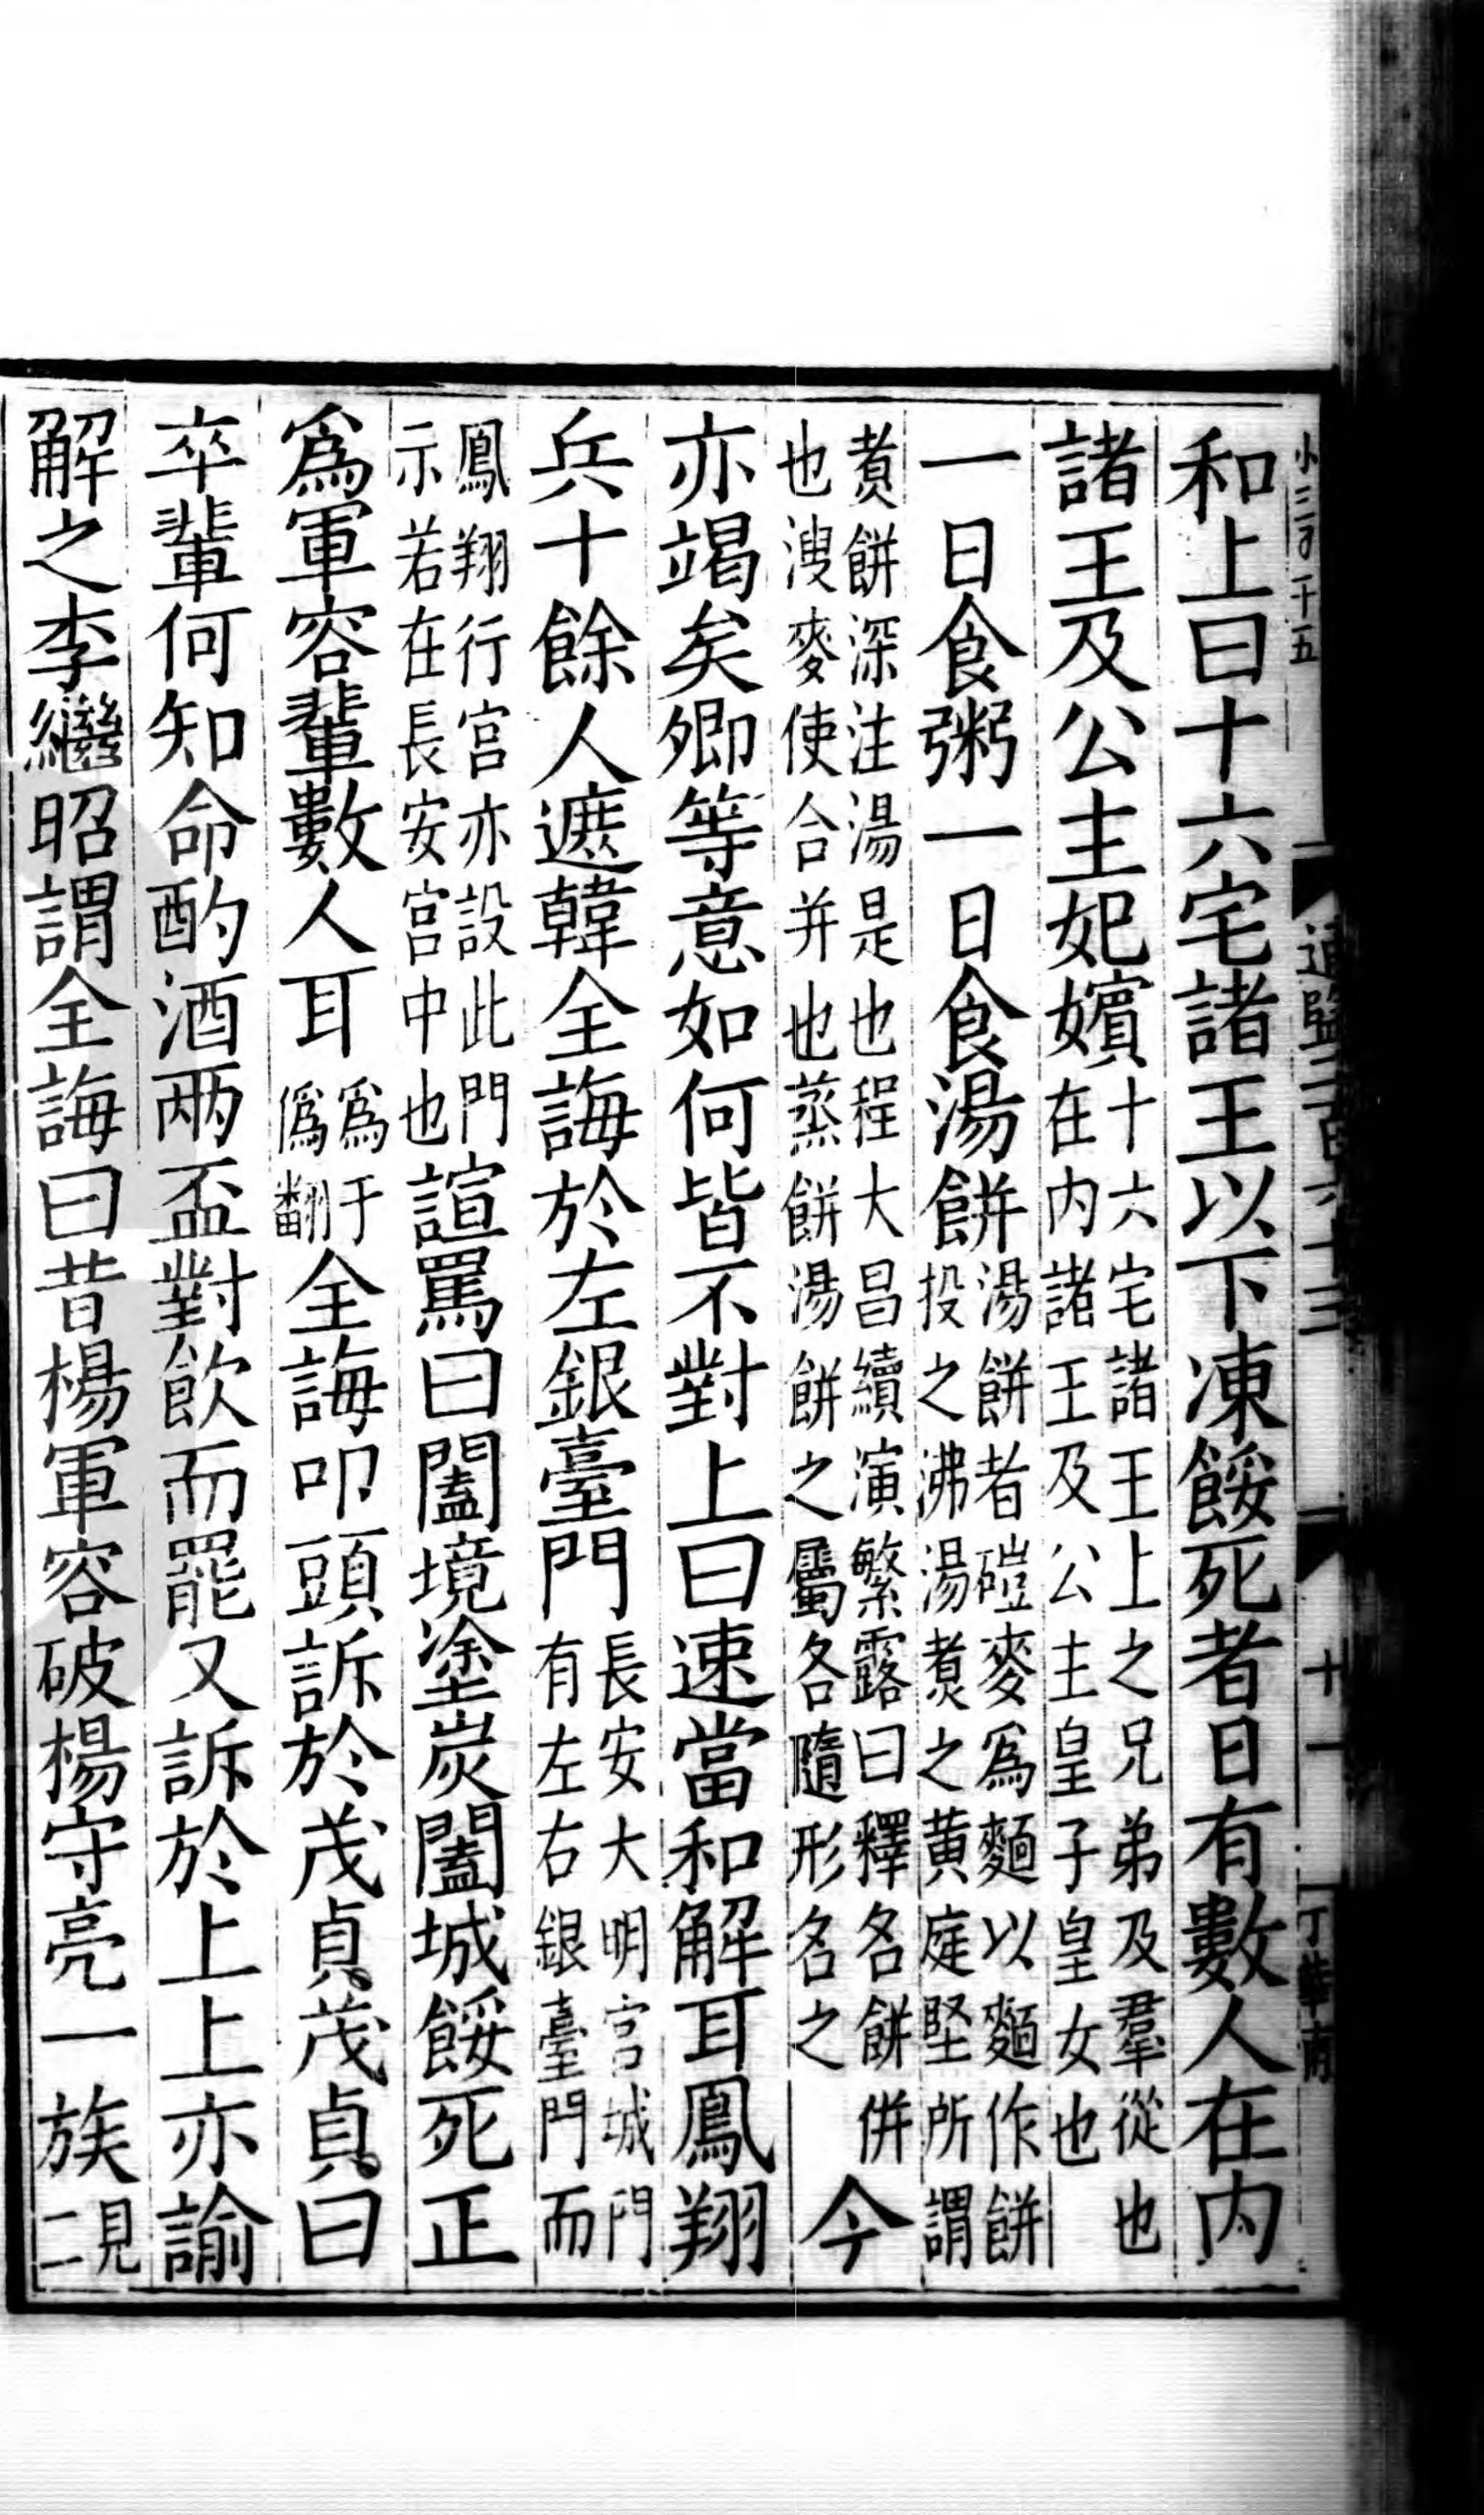 和上曰十六宅諸王以下凍餒死者日有數人在内
諸王及公主妃嬪十六宅諸王上之兄弟及羣從也在内諸王及公主皇子皇女也
一日食粥一日食湯餅湯餅者磑麥為麵以麵作餅投之沸湯煑之黄庭堅所謂
煑餅深注湯是也程大昌續演繁露曰釋名餅併也溲麥使合并也蒸餅湯餅之屬各隨形名之今
亦竭矣卿等意如何皆不對上曰速當和解耳鳳翔
兵十餘人遮韓全誨於左銀臺門長安大明宫城門有左右銀臺門而
鳳翔行宫亦設此門示若在長安宫中也諠罵曰闔境塗炭闔城餒死正
為軍容輩數人耳為于偽翻全誨叩頭訴於茂貞茂貞曰
卒輩何知命酌酒兩盃對飲而罷又訴於上上亦諭
解之李繼昭謂全誨曰昔楊軍容破楊守亮一族見二
十一